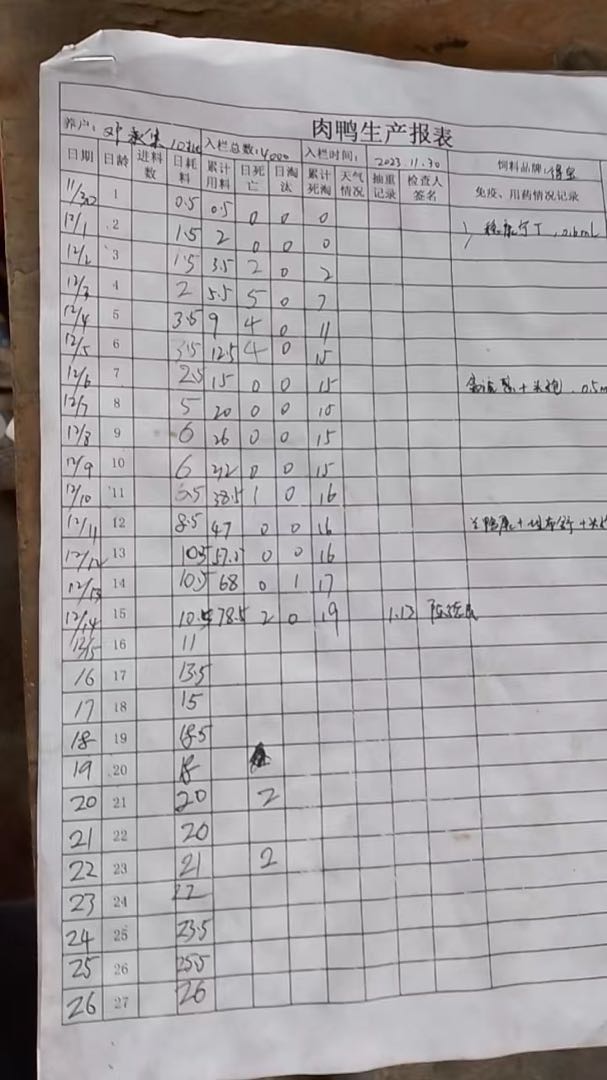 肉鸭生产报表
养户: 邓 入栏总数: 4000 入栏时间: 2023.11.30 饲料品牌:
日期 日龄 进料数 日耗料 累计用料 日死亡 日淘汰 累计死淘 天气情况 抽重记录 检查人签名 免疫、用药情况记录
11/30 1 0.5 0.5 0 0 0
12/1 2 1.5 2 0 0 0 0.6ml
12/2 3 1.5 3.5 2 0 2
12/3 4 2 5.5 5 0 7
12/4 5 3.5 9 4 0 11
12/5 6 3.5 12.5 4 0 15
12/6 7 2.5 15 0 0 15 0.5m
12/7 8 5 20 0 0 15
12/8 9 6 26 0 0 15
12/9 10 6 32 0 0 15
12/10 11 6.5 38.5 1 0 16
12/11 12 8.5 47 0 0 16
12/12 13 10.5 57.5 0 0 16
12/13 14 10.5 68 0 1 17
12/14 15 10.5 78.5 2 0 19 1.13
12/15 16 11
16 17 13.5
17 18 15
18 19 18.5
19 20 18
20 21 20 2
21 22 20
22 23 21 2
23 24 22
24 25 23.5
25 26 25.5
26 27 26